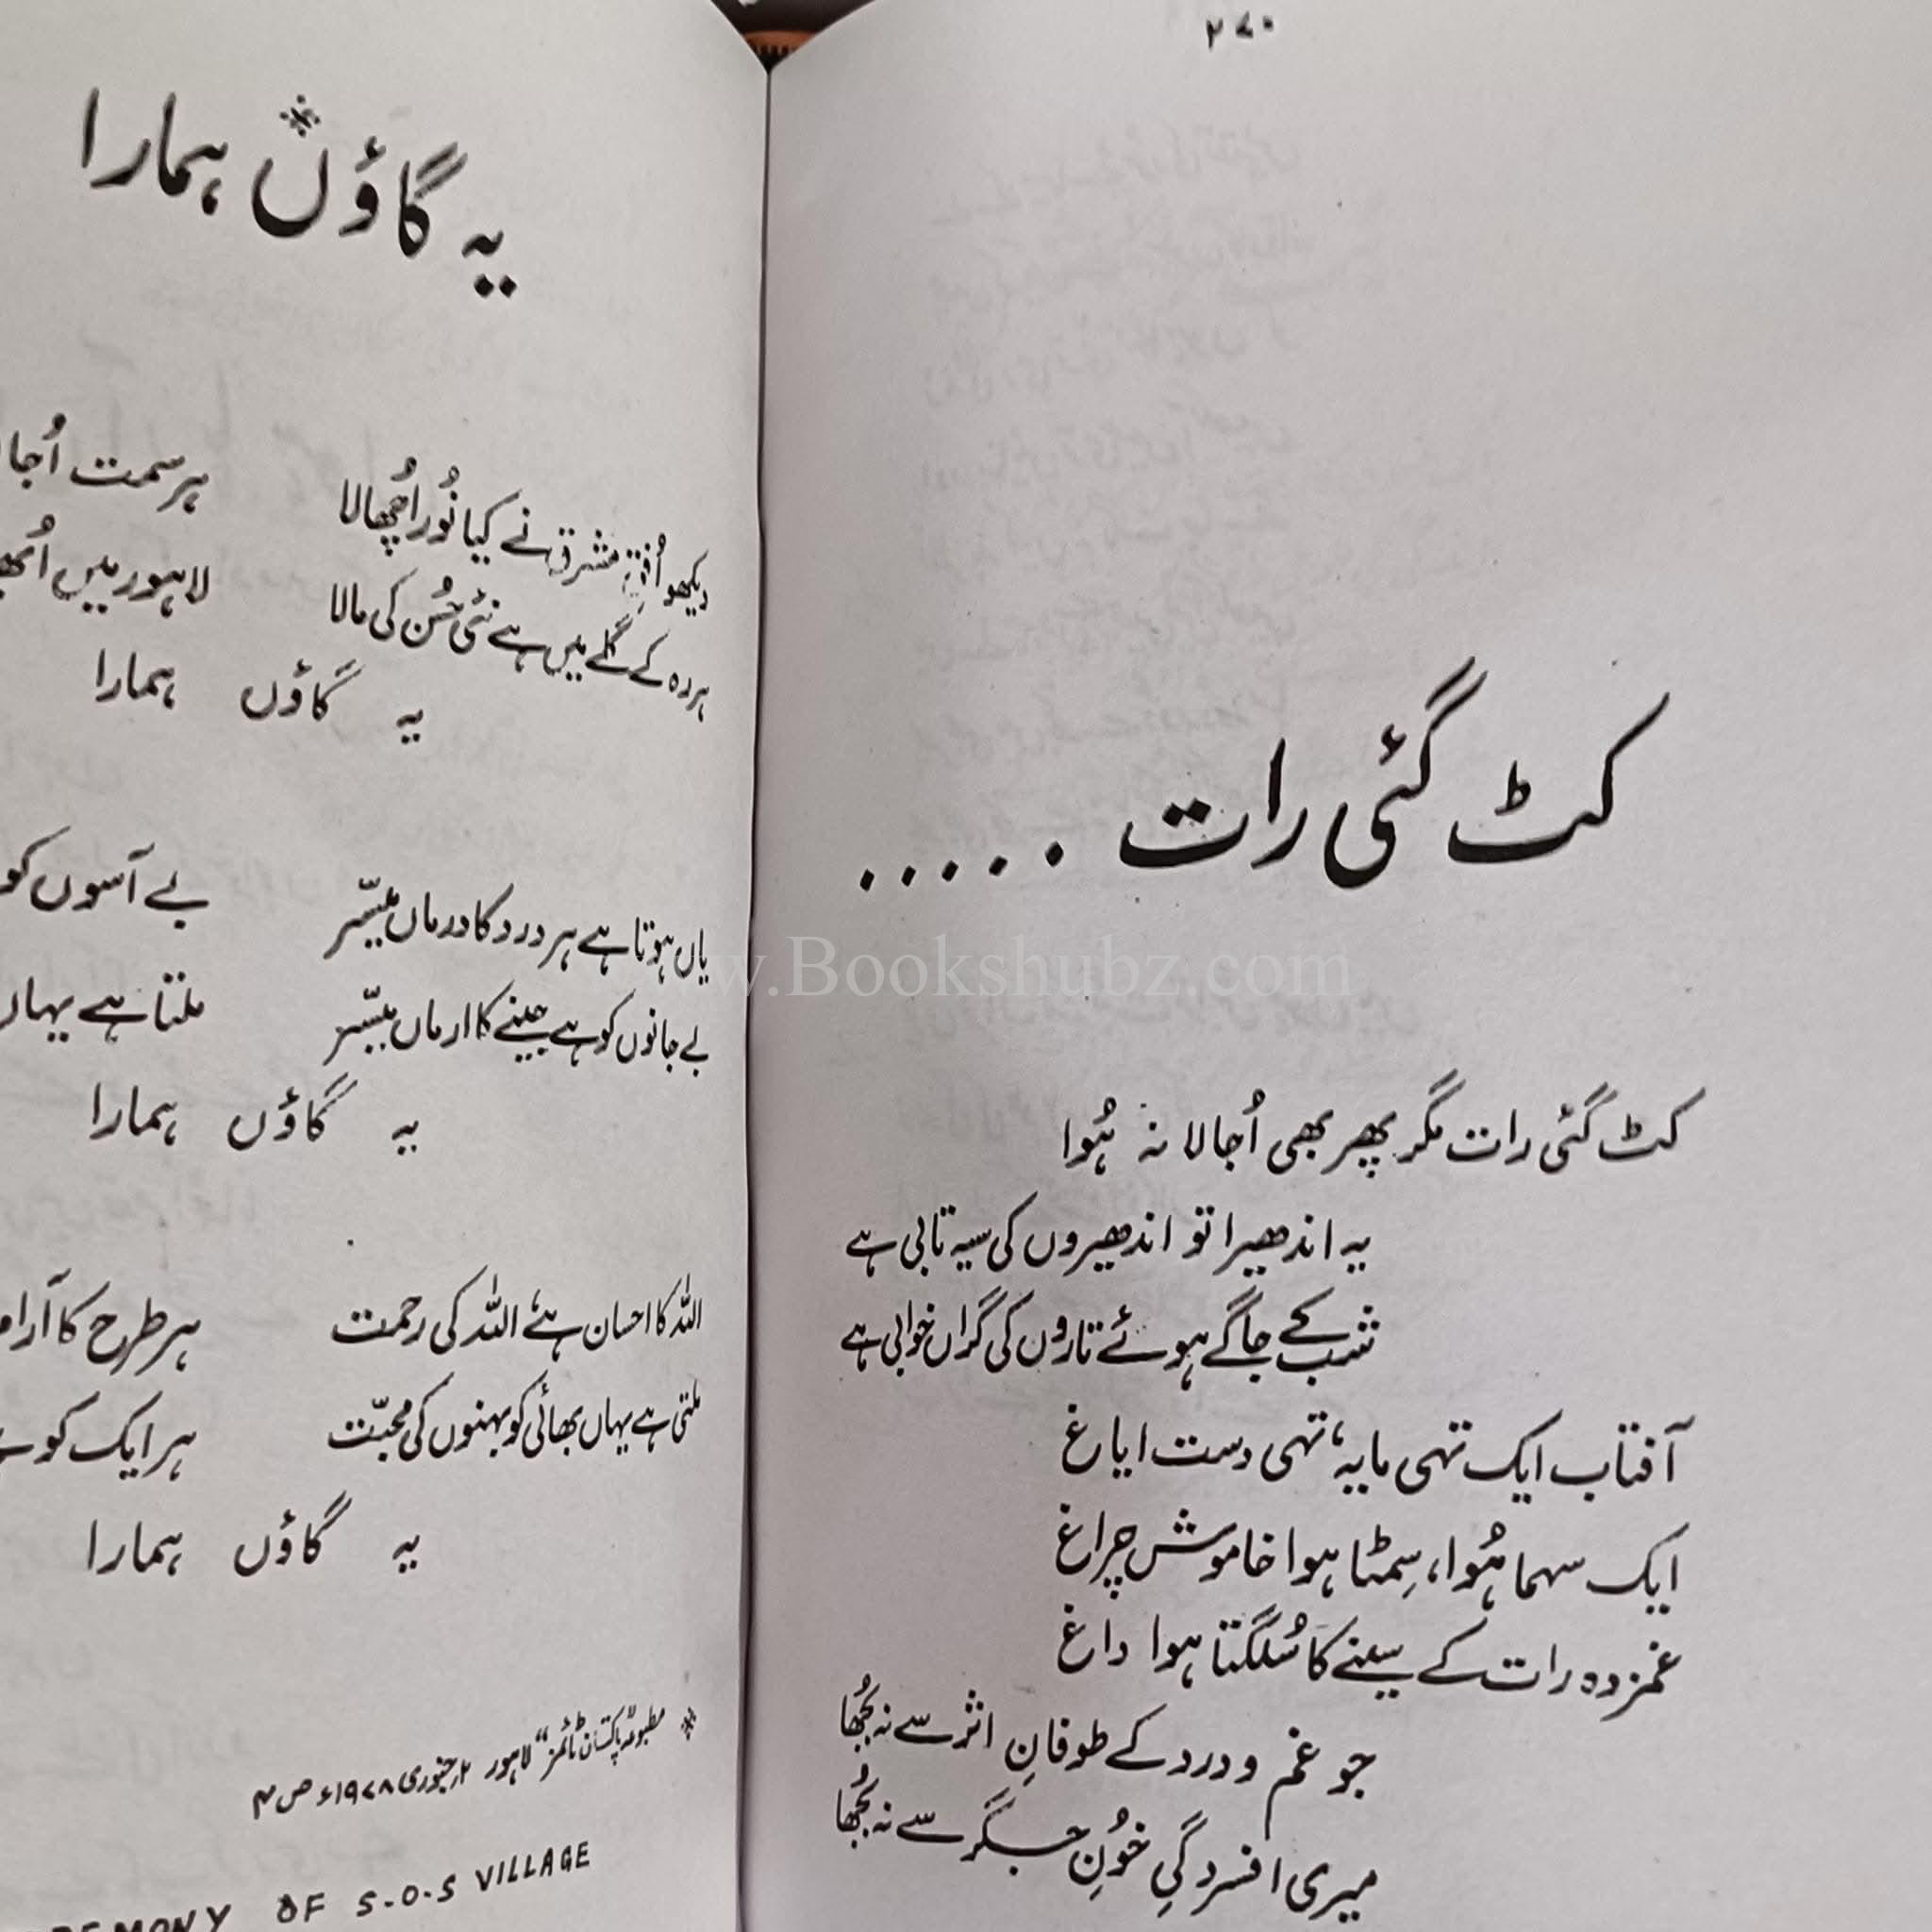 ۲۷۰
کٹ گئی رات . . . . .
کٹ گئی رات مگر پھر بھی اُجالا نہ ہُوا
یہ اندھیرا تو اندھیروں کی سیہ تابی ہے
شب کے جاگے ہوئے تاروں کی گراں خوابی ہے
آفتاب ایک تہی مایہ، تہی دست ایاغ
ایک سہما ہُوا، سِمٹا ہوا خاموش چراغ
غمزدہ رات کے سینے کا سُلگتا ہوا داغ
جو غم و درد کے طوفانِ اثر سے نہ بُجھا
میری افسردگیِ خُونِ جگر سے نہ بُجھا
یہ گاؤں* ہمارا
دیکھو اُفقِ مشرق نے کیا نُور اُچھالا ہر سمت اُجا
ہر دہ کے گلے میں ہے نئی حُسن کی مالا لاہور میں اُبھ
یہ گاؤں ہمارا
یاں ہوتا ہے ہر درد کا درماں میسّر بے آسوں کو
بے جانوں کو ہے جینے کا ارماں میسّر ملتا ہے یہاں
یہ گاؤں ہمارا
اللہ کا احسان ہے، اللہ کی رحمت ہر طرح کا آرام
ملتی ہے یہاں بھائی کو بہنوں کی محبّت ہر ایک کو
یہ گاؤں ہمارا
* مطبوعہ "پاکستان ٹائمز" لاہور ۲ر جنوری ۱۹۷۸ء ص ۴
EMONY OF S-O-S VILLAGE
www.Bookshubz.com